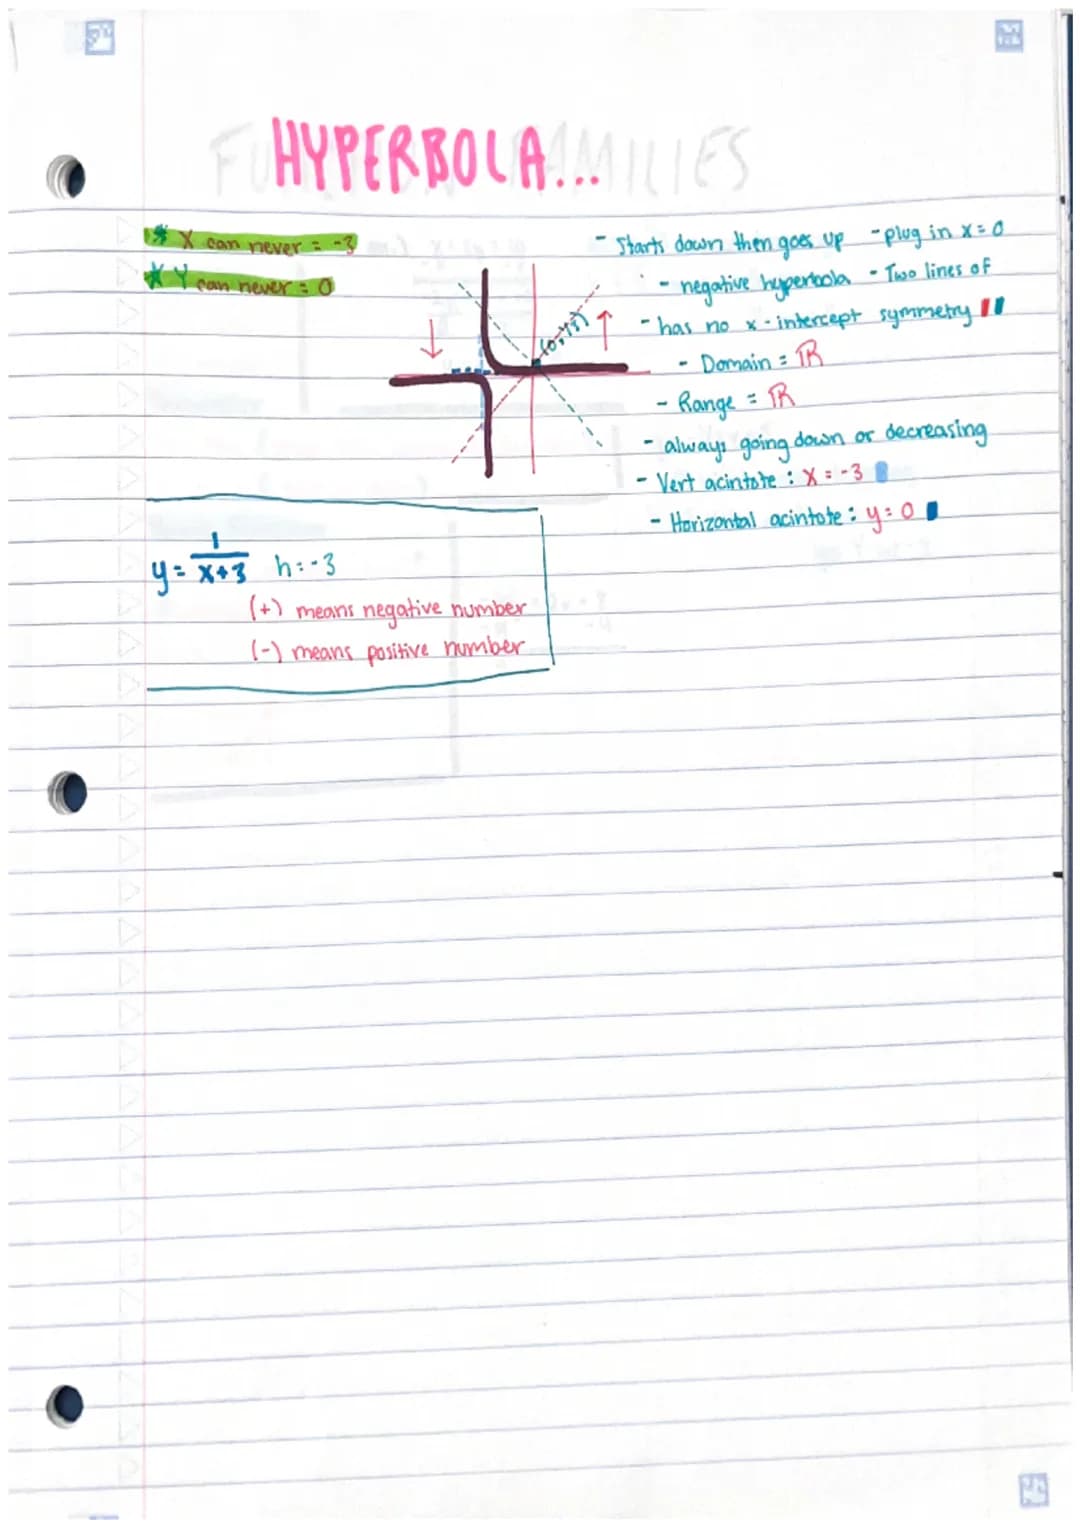 HYPERBOLA...
FU AMILIES
* X can never = -3
* Y can never = 0
- Starts down then goes up
- plug in x = 0
- negative hyperbola
- Two lines of symmetry
- has no x-intercept
- Domain = ℝ
- Range = ℝ
- always going down or decreasing
- Vert acintote : X = -3
- Horizontal acintote : y = 0
y = 1/x+3 h = -3
(+) means negative number
(-) means positive number